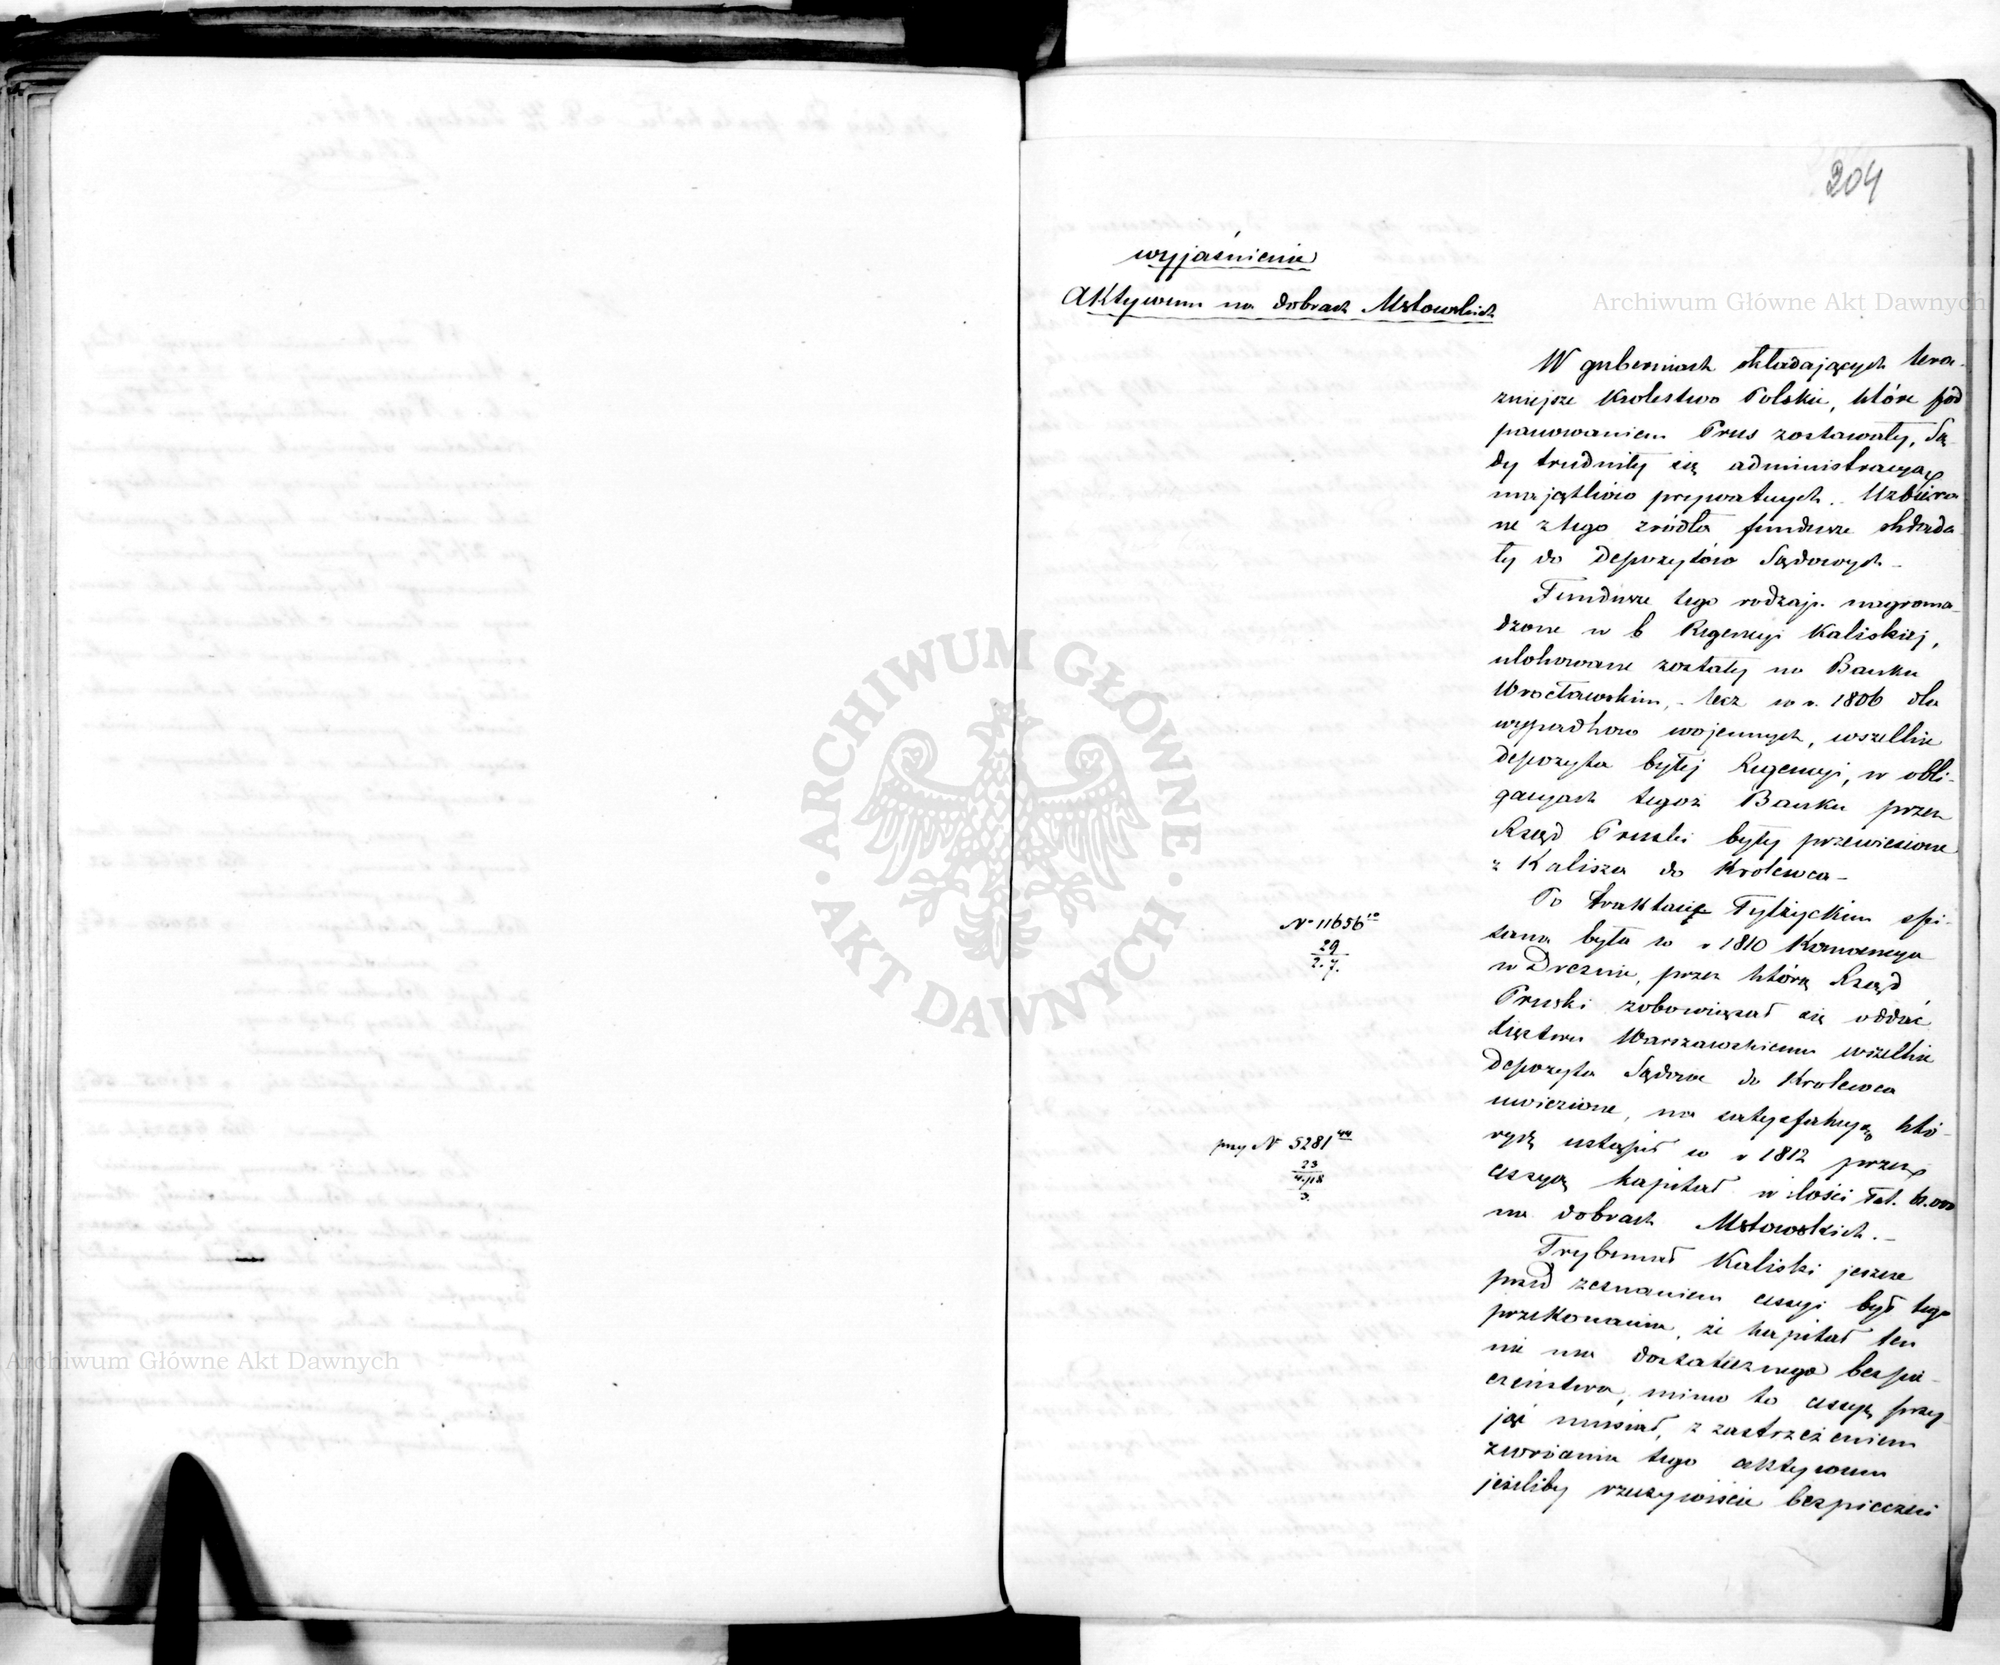 204
wyjaśnienie
Aktywum na dobrach Mstowskich
Archiwum Główne Akt Dawnych
W guberniach składających tera-
zniejsze Krolestwo Polskie, które pod
panowaniem Prus zostawały, Są-
dy trudniły się administracyą
majątków prywatnych. Uzbiera
ne z tego zródła fundusze składa-
ły do depozytów Sądowych.
Fundusze tego rodzaju nagroma-
dzone w b Regencyi Kaliskiej,
ulokowane zostały w Banku
Wrocławskim, - lecz w r. 1806 dla
wypadkow wojennych, wszelkie
depozyta byłej Regencyi, w obli-
gacyach tegoż Banku przez
Rząd Pruski były przewiezione
z Kalisza do Krolewca -
Po traktacie Tylżyckim spi-
sana była w r 1810 Konwencya
w Dreznie, przez którą Rząd
Pruski zobowiązał się oddać
Xięstwu Warszawskiemu wszelkie
depozyta Sądowe do Krolewca
uwiezione, na satysfakcyą któ-
rych ustąpił w r 1812 przez
cessyą kapitał w ilości tal. 61.000
na dobrach Mstowskich. -
Trybunał Kaliski jeszcze
przed zeznaniem cessyi był tego
przekonania, że kapitał ten
nie ma dostatecznego bezpie-
czeństwa, mimo to cessyą przy-
jąć musiał, z zastrzeżeniem
zwrócenia tego aktywum
jeżeliby rzeczywiście bezpieczeń
N 11656 10
29
2.7.
przy N 5281 44
23
4./18
3.
ARCHIWUM GŁÓWNE · AKT DAWNYCH ·
Archiwum Główne Akt Dawnych